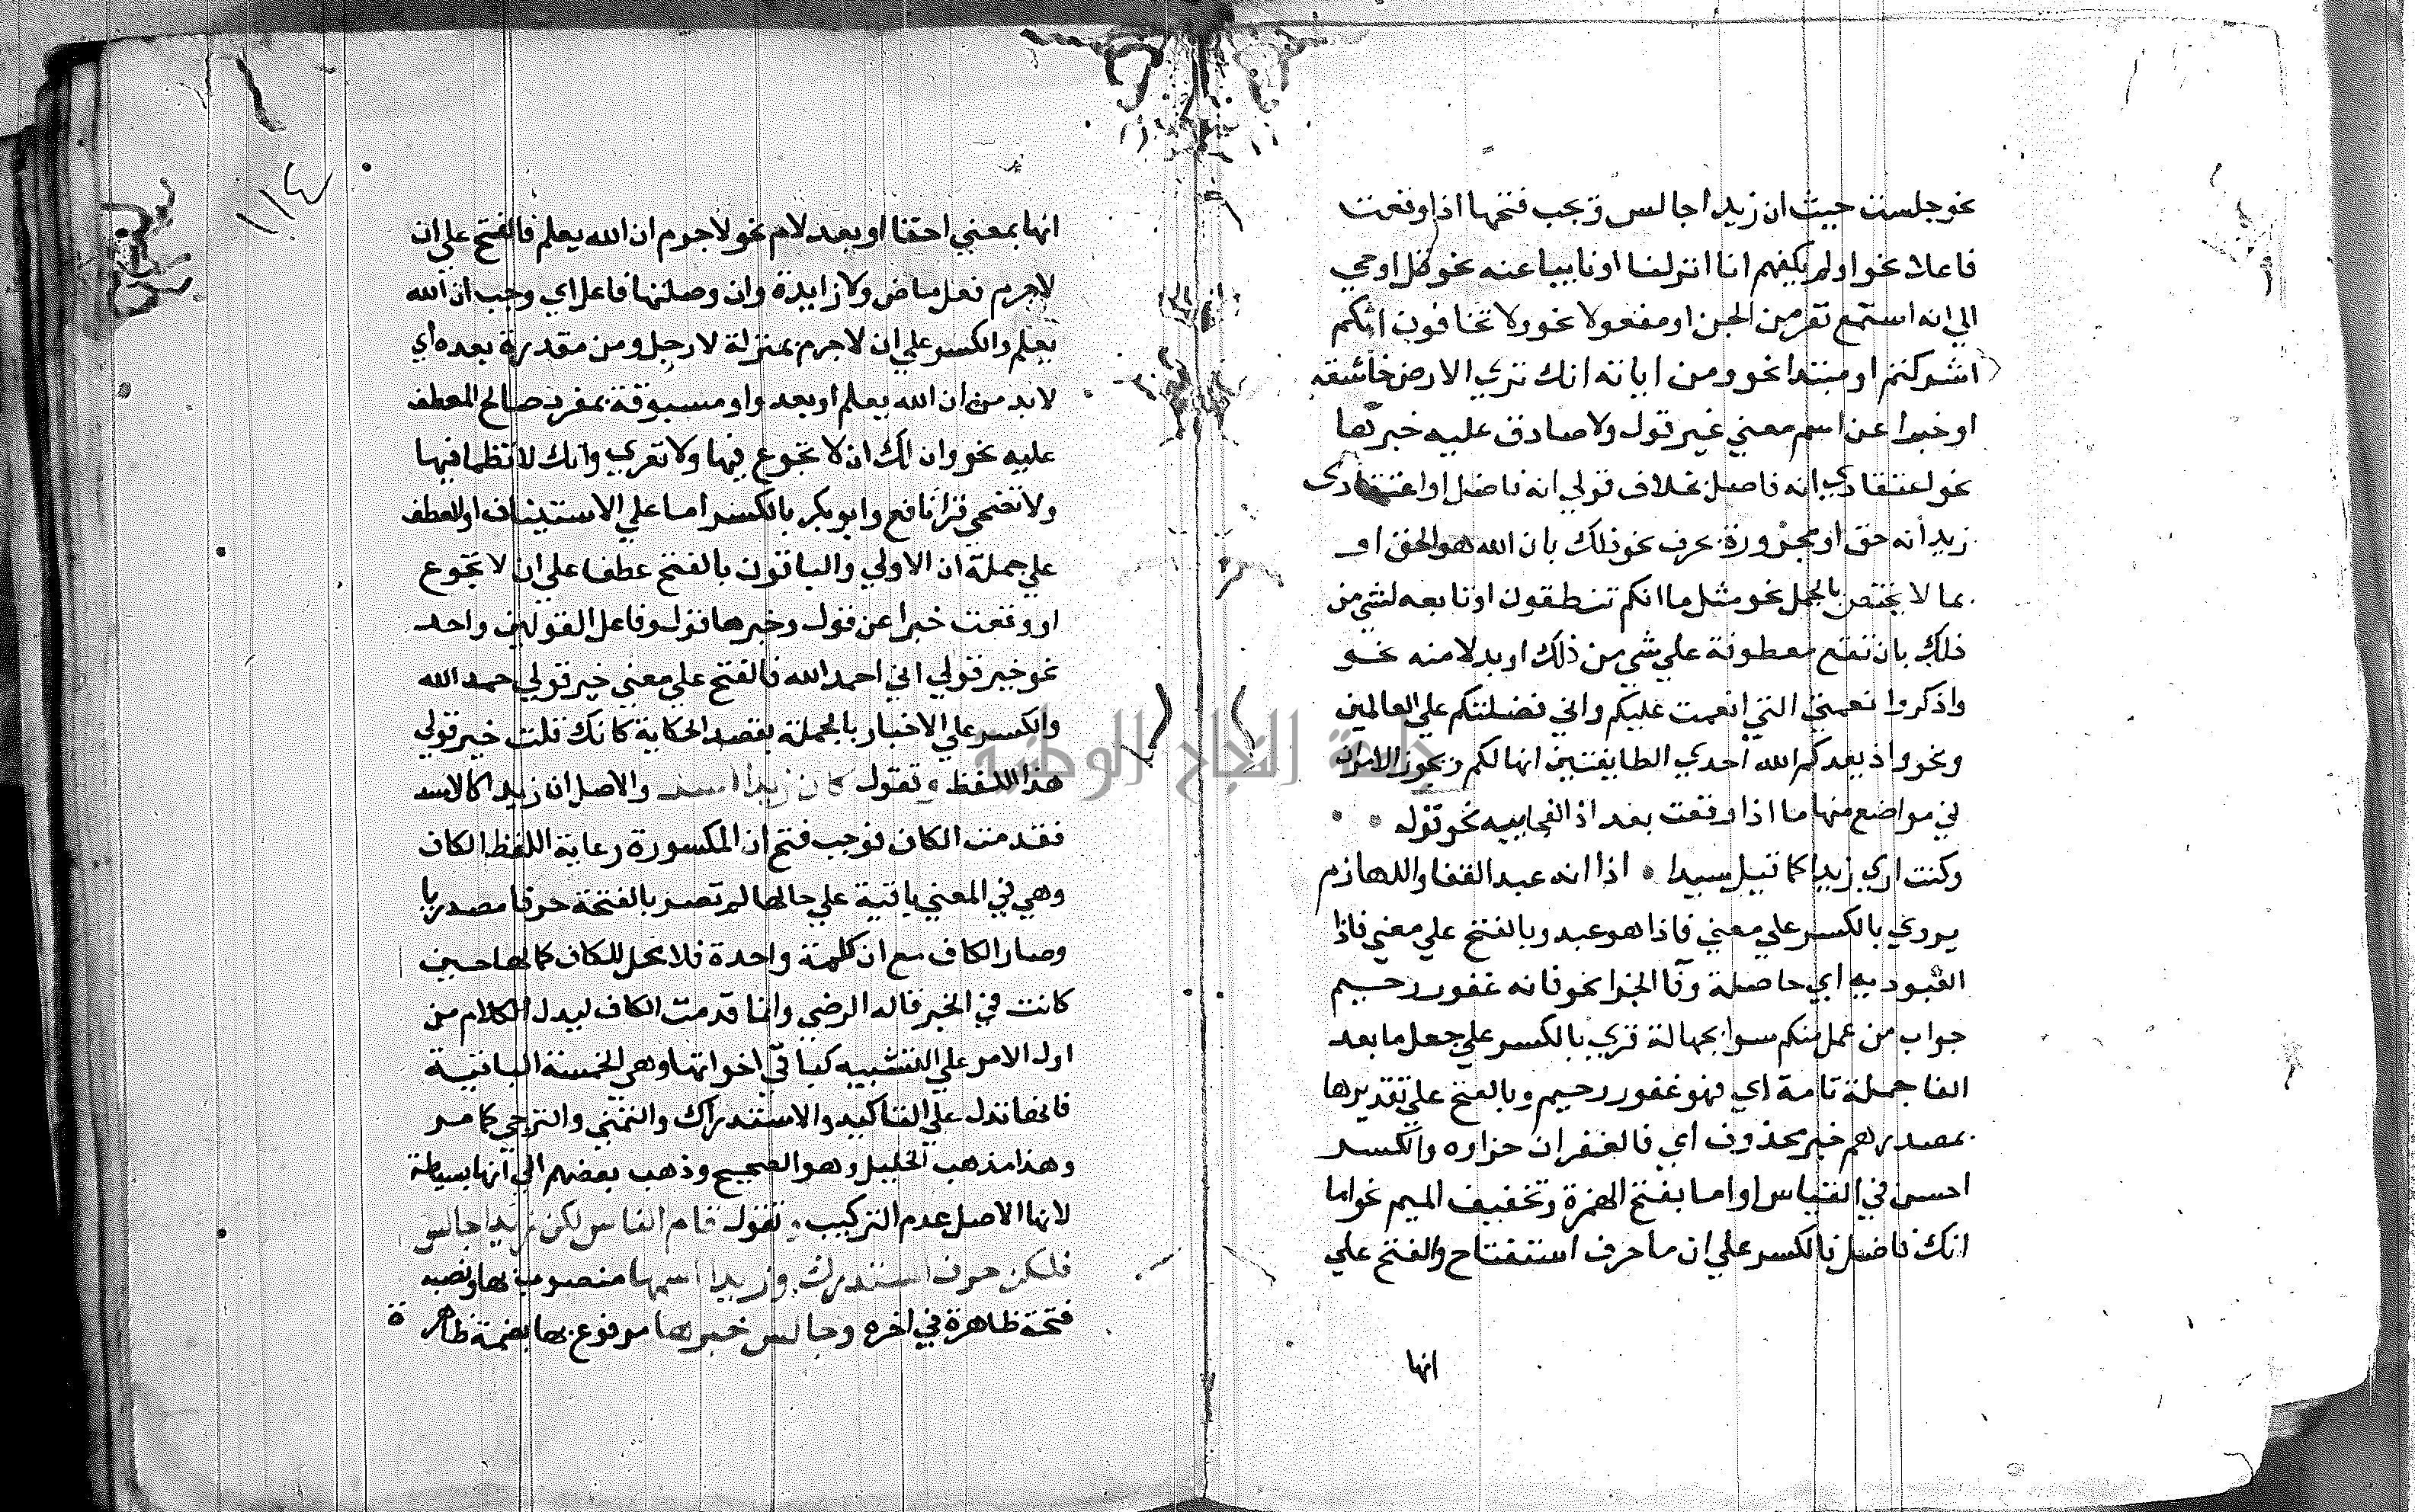 نحو جلست حيث ان زيدا جالس ويجب فتحها اذا وقعت
فاعلا نحو اولم يكفهم انا انزلنا او نايبا عنه نحو قل اوحي
الي انه استمع نفر من الجن او مفعولا نحو ولا تخافون انكم
اشركتم او مبتدا نحو ومن اياته انك تري الارض خاشعة
او خبرا عن اسم معني غير قول ولا صادق عليه خبرها
نحو اعتقادي انه فاضل بخلاف قولي انه فاضل او اعتقادي
زيد انه حق او مجرورة بحرف نحو ذلك بان الله هو الحق او
بما لا يختص بالجمل نحو مثل ما انكم تنطقون او تابعه لشي من
ذلك بان تقع معطوفة علي شي من ذلك او بدلا منه نحو
واذكروا نعمتي التي انعمت عليكم واني فضلتكم علي العالمين
ونحو واذ يعدكم الله احدي الطايفتين انها لكم ويجوز الامران
في مواضع منها ما اذا وقعت بعد اذ الفجاييه نحو قوله
وكنت اري زيدا كما قيل سيدا • اذا انه عبد القفا واللهازم
يروي بالكسر علي معني فاذا هو عبد وبالفتح علي معني فاذا
العبوديه اي حاصلة وفا الجزا نحو فانه غفور رحيم
جواب من عمل منكم سوا بجهالة قري بالكسر علي جعل ما بعد
الفا جملة تامة اي فهو غفور رحيم وبالفتح علي تقديرها
بمصدر هم خبر محذوف اي فالغفران جزاوه والكسر
احسن في القياس او اما بفتح الهمزة وتخفيف الميم نحو اما
انك فاضل فالكسر علي ان ما حرف استفتاح والفتح علي
انها
١١٤
انها بمعني احقا او بعد لام نحو لا جرم ان الله يعلم فالفتح علي ان
لا جرم فعل ماض ولا زايدة وان وصلتها فاعل اي وجب ان الله
يعلم والكسر علي ان لا جرم بمنزلة لا رجل ومن مقدرة بعده اي
لا بد من ان الله يعلم او بعد واو مسبوقة بمفرد صالح العطف
عليه نحو وان لك ان لا تجوع فيها ولا تعري وانك لا تظما فيها
ولا تضحي قرا نافع وابو بكر بالكسر اما علي الاستيناف او للعطف
علي جملة ان الاولي والباقون بالفتح عطفا علي ان لا تجوع
او وقعت خبرا عن قول وخبرها قول وفاعل القولين واحد
نحو خير قولي اني احمد الله فالفتح علي معني خير قولي حمد الله
والكسر علي الاخبار بالجملة بقصد الحكاية كانك قلت خير قولي
هذا اللفظ • تقول كان زيدا اسد والاصل ان زيدا كالاسد
فقدمت الكاف فوجب فتح ان المكسورة رعاية اللفظ الكاف
وهي في المعني باقية علي حالها لم تصر بالفتحة حرفا مصدريا
وصار الكاف مع ان كلمة واحدة فلا محل للكاف كما لها حين
كانت في الخبر قاله الرضي وانما قدمت الكاف ليدل الكلام من
اول الامر علي التشبيه كباقي اخواتها وهي الخمسة الباقية
فانها تدل علي التاكيد والاستدراك والتمني والترجي كما مر
وهذا مذهب الخليل وهو الصحيح وذهب بعضهم الي انها بسيطة
لانها الاصل عدم التركيب • تقول قام الناس لكن زيدا جالس
فلكن حرف استدراك وزيدا اسمها منصوب بها ونصبه
فتحة ظاهرة في اخره وجالس خبرها مرفوع بها بضمة ظاهرة
جامعة النجاح الوطنية